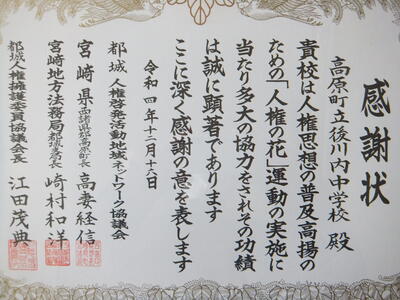 感謝状
高原町立後川内中学校 殿
貴校は人権思想の普及高揚の
ための「人権の花」運動の実施に
当たり多大の協力をされその功績
は誠に顕著であります
ここに深く感謝の意を表します
令和四年十二月十六日
都城 人権啓発活動地域ネットワーク協議会
宮崎県西諸県郡高原町長 高妻経信
宮崎地方法務局都城支局長 崎村和洋
都城人権擁護委員協議会長 江田茂典